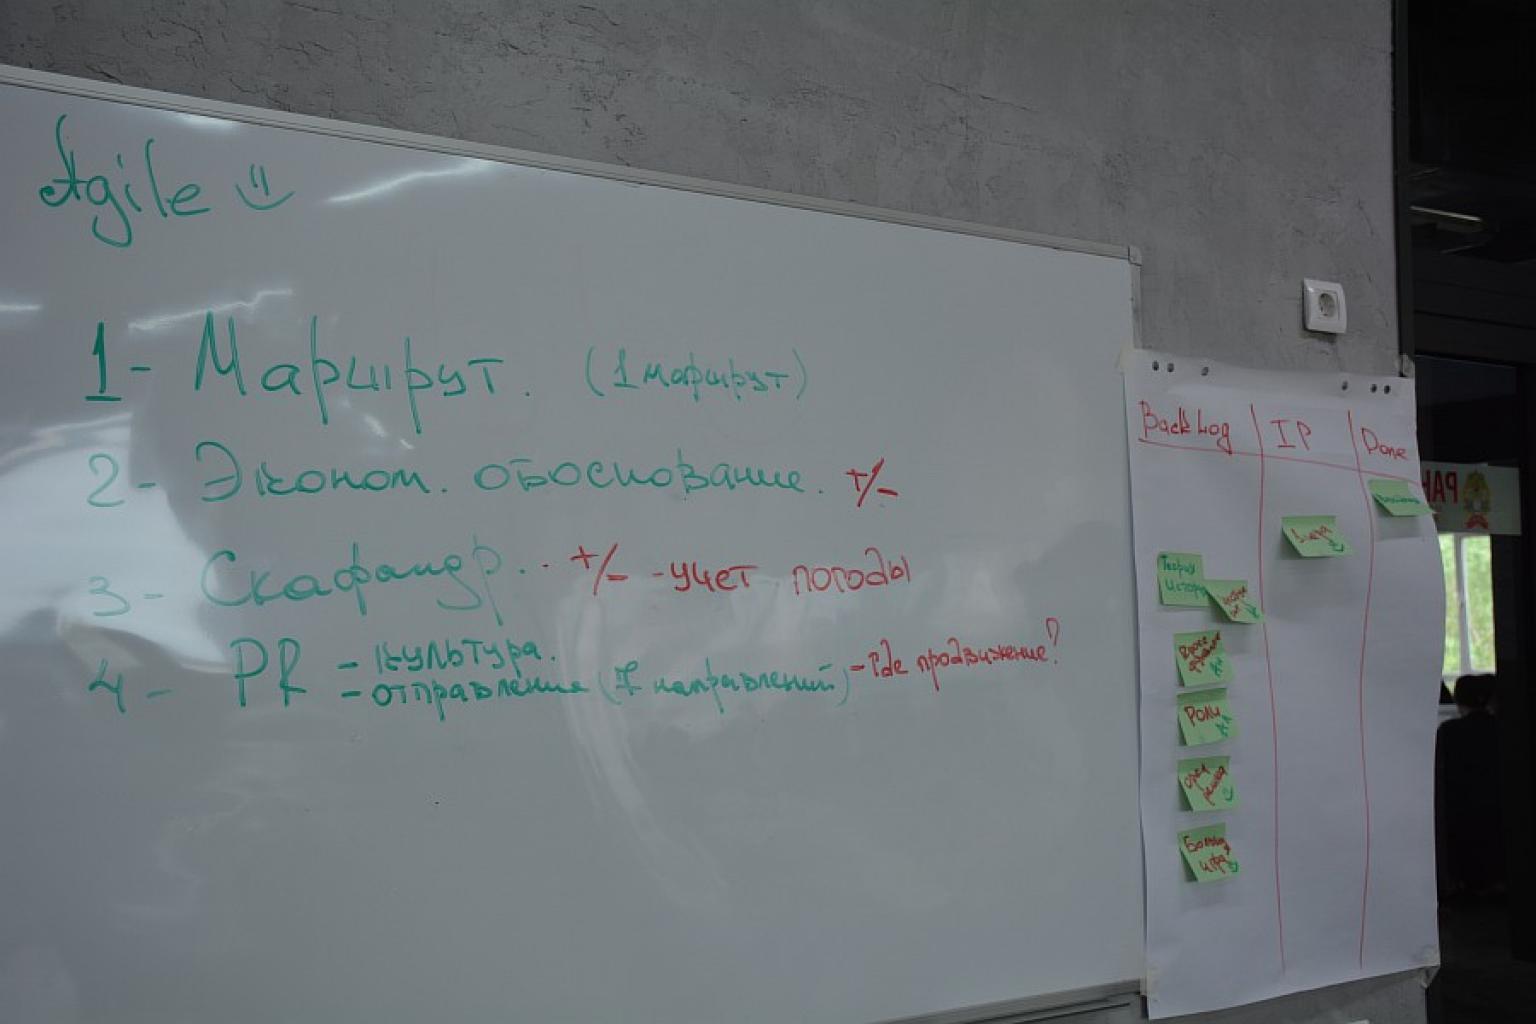 Agile
1 - Маршрут. (1 маршрут)
2 - Эконом. обоснование. +/-
3 - Скафандр.. +/- - учет погоды
4 - PR - культура.
- отправления (7 направлений) - где продвижение?
BackLog IP Done
Теория
истор
Роли
Большая
игра
РАН